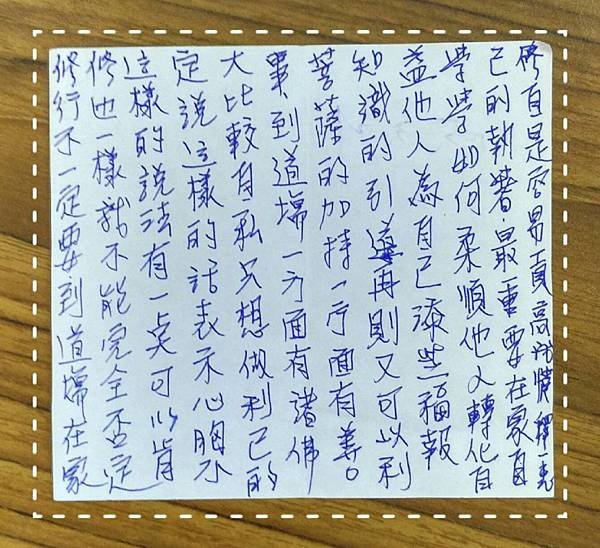 修行不一定要到道場在家
修也一樣我不能完全否定
這樣的說法有一点可以肯
定說這樣的話表示心胸不
大比較自私只想做利己的
事,到道場一方面有諸佛
菩薩的加持一方面有善
知識的引導再則又可以利
益他人為自己添些福報
學學如何柔順他人轉化自
己的執著.最重要在家自
修自是容易貢高我慢 釋一